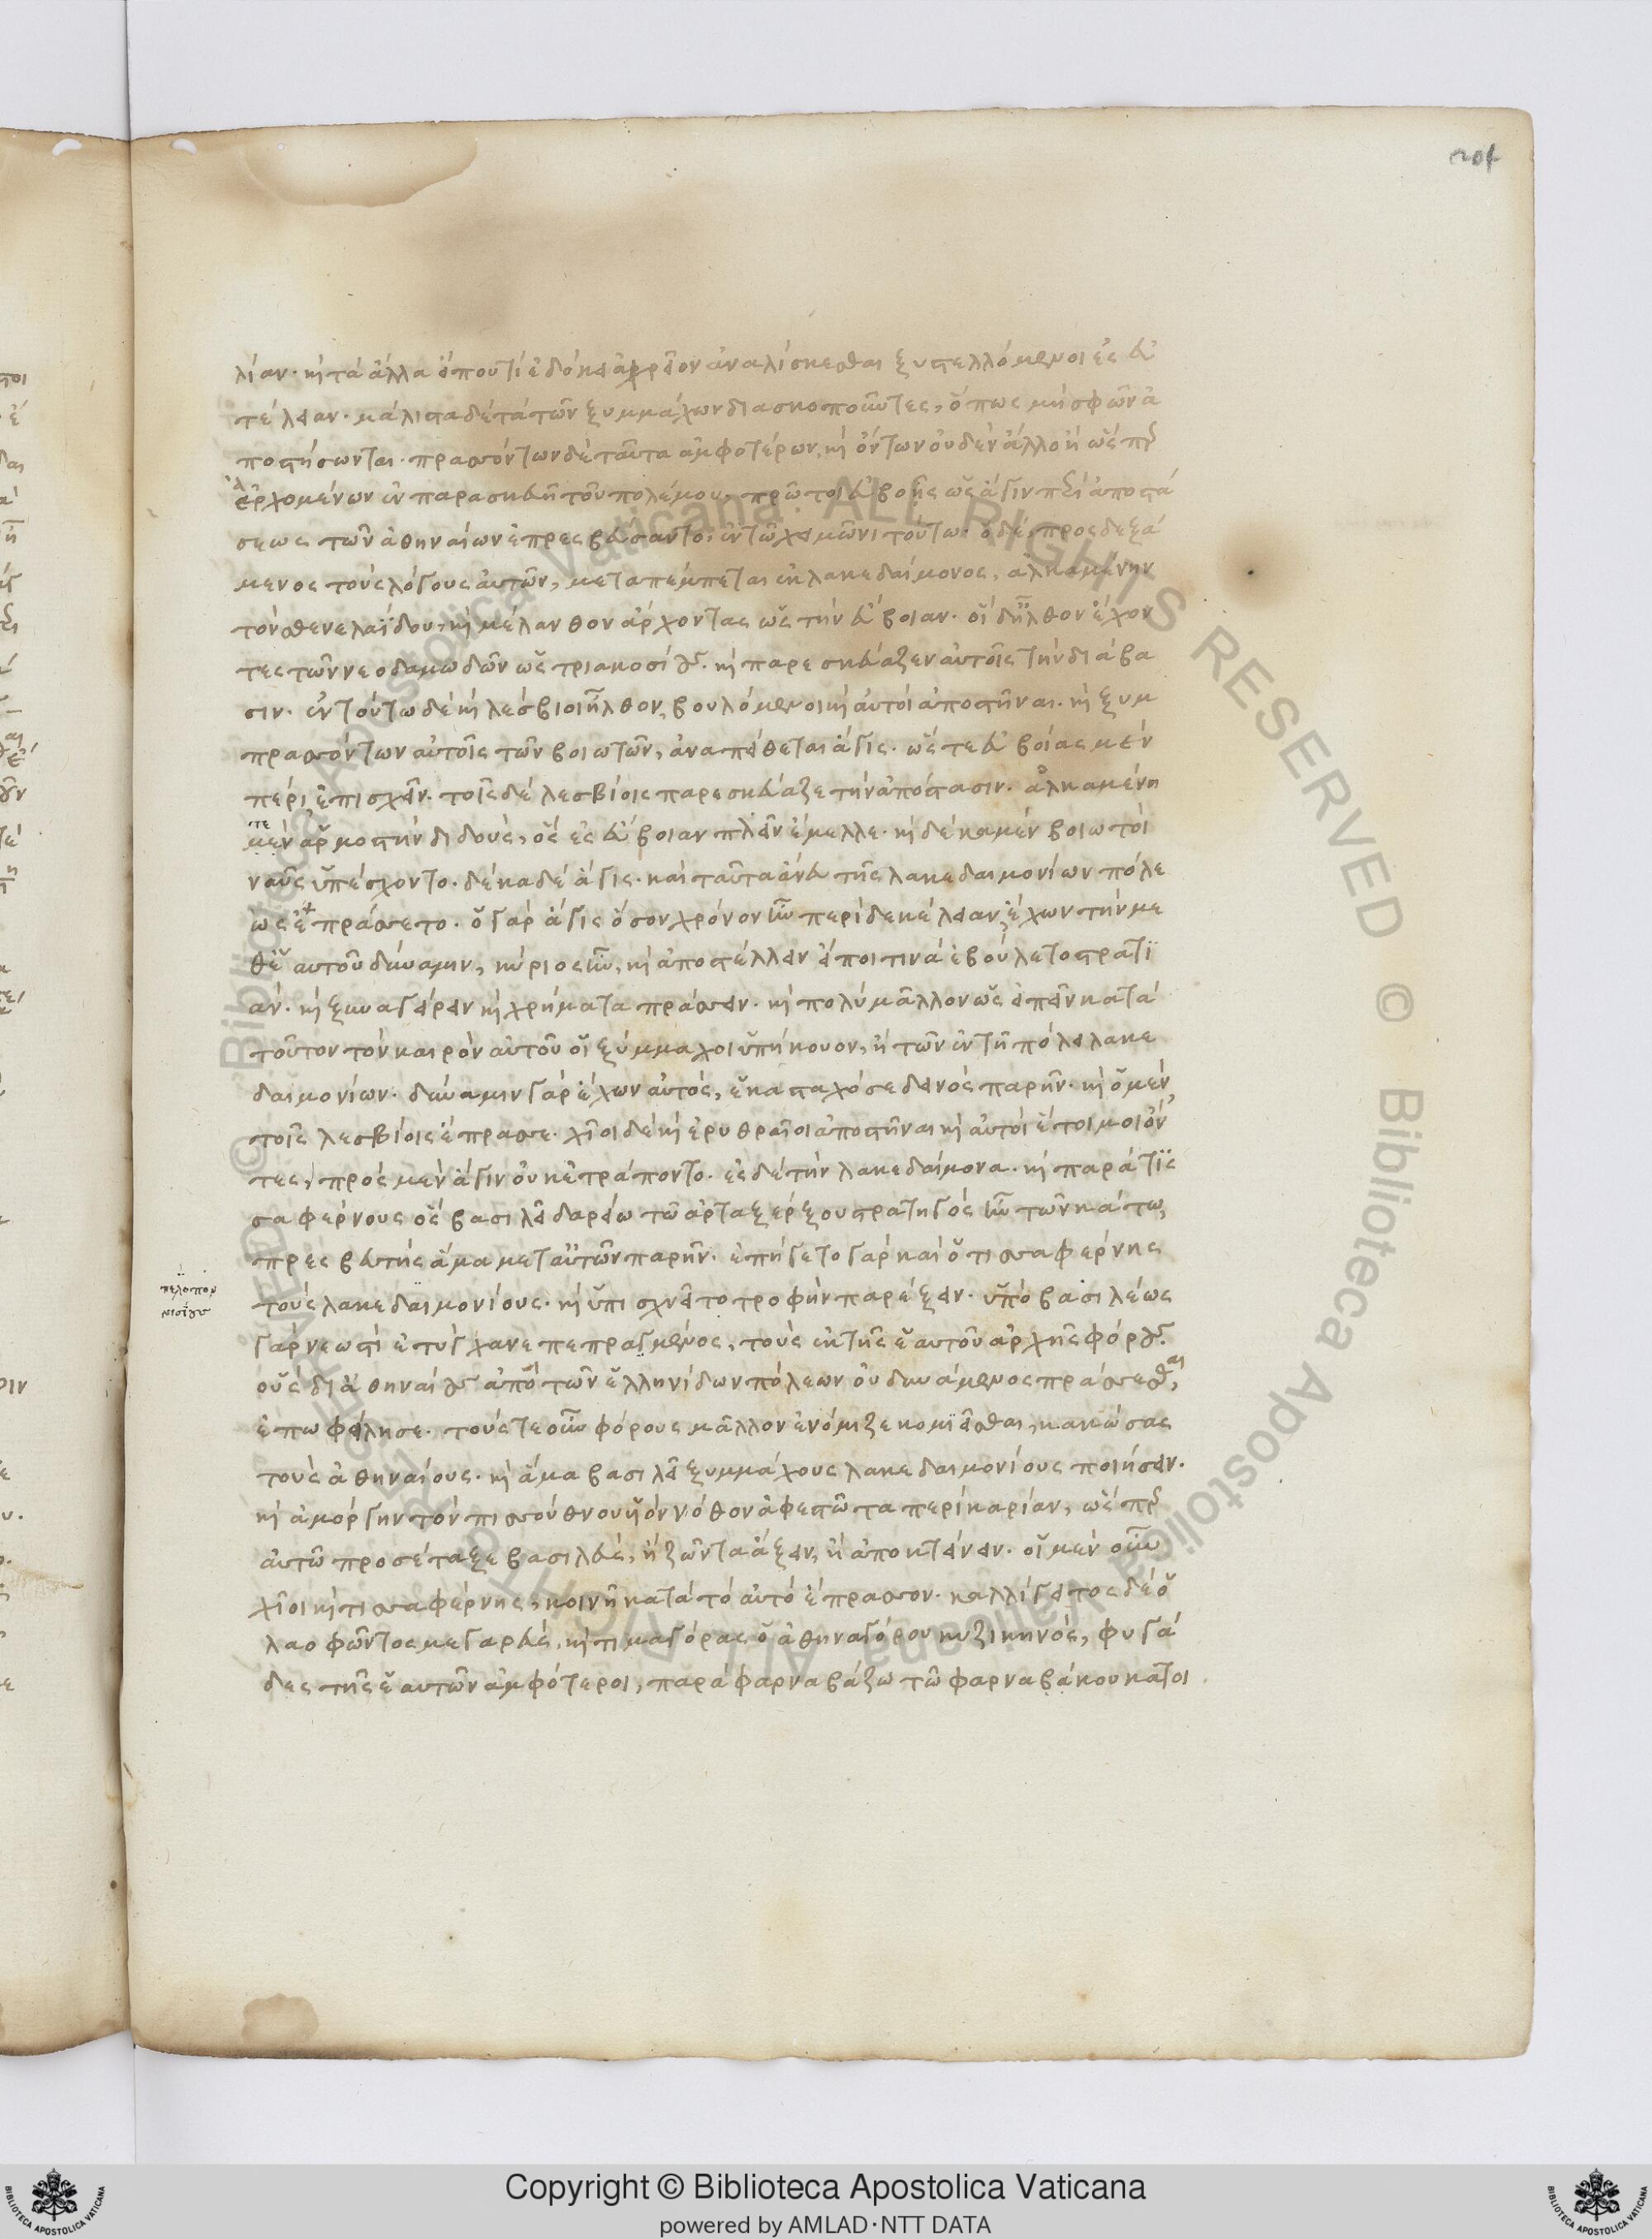 201
λίαν· καὶ τὰ ἄλλα εἴπού τι ἐδόκει ἀχρεῖον ἀναλίσκεσθαι ξυστελλόμενοι ἐς εὐ
τέλειαν· μάλιστα δὲ τὰ τῶν ξυμμάχων διασκοποῦντες, ὅπως μὴ σφῶν ἀ
ποστήσωνται· πρασσόντων δὲ ταῦτα ἀμφοτέρων, καὶ ὄντων οὐδὲν ἄλλο ἢ ὥσπερ
ἀρχομένων ἐν παρασκευῆ τοῦ πολέμου, πρῶτοι εὐβοῆς ὡς ἆγιν περὶ ἀποστά
σεως τῶν ἀθηναίων ἐπρεσβεύσαντο, ἐν τῶ χειμῶνι τούτω· ὁ δὲ, προσδεξά
μενος τοὺς λόγους αὐτῶν, μεταπέμπεται ἐκ λακεδαίμονος, ἀλκαμένην
τὸν σθενελαΐδου, καὶ μέλανθον ἄρχοντας ὡς τὴν εὔβοιαν· οἱ δ' ἦλθον ἔχον
τες τῶν νεοδαμωδῶν ὡς τριακοσίους· καὶ παρεσκεύαζεν αὐτοῖς τὴν διάβα
σιν· ἐν τούτω δὲ καὶ λέσβιοι ἦλθον, βουλόμενοι καὶ αὐτοὶ ἀποστῆναι· καὶ ξυμ
πρασσόντων αὐτοῖς τῶν βοιωτῶν, ἀναπείθεται ἆγις· ὥστε εὐβοίας μὲν
πέρι, ἐπισχεῖν· τοῖς δὲ λεσβίοις παρεσκεύαζε τὴν ἀπόστασιν· ἀλκαμένη
τε
μὲν ἁρμοστὴν διδοὺς, ὃς ἐς εὔβοιαν πλεῖν ἔμελλε· καὶ δέκα μὲν βοιωτοὶ
ναῦς ὑπέσχοντο· δέκα δὲ ἆγις· καὶ ταῦτα ἄνευ τῆς λακεδαιμονίων πόλε
ως ἐπράσσετο· ὁ γὰρ ἆγις ὅσον χρόνον ἦν περὶ δεκέλειαν, ἔχων τὴν με
θ' ἑαυτοῦ δύναμιν, κύριος ἦν, καὶ ἀποστέλλειν εἴποι τινὰ ἐβούλετο στρατϊ
ὰν· καὶ ξυναγείρειν καὶ χρήματα πράσσειν· καὶ πολὺ μᾶλλον ὡς εἰπεῖν κατὰ
τοῦτον τὸν καιρὸν αὐτοῦ οἱ ξύμμαχοι ὑπήκουον, ἢ τῶν ἐν τῆ πόλει λακε
δαιμονίων· δύναμιν γὰρ ἔχων αὐτὸς, ἑκασταχόσε δεινὸς παρῆν· καὶ ὁ μὲν
τοῖς λεσβίοις ἔπρασσε· χῖοι δὲ καὶ ἐρυθραῖοι ἀποστῆναι καὶ αὐτοὶ ἕτοιμοι ὄν
τες, πρὸς μὲν ἆγιν οὐκ ἐτράποντο· ἐς δὲ τὴν λακεδαίμονα· καὶ παρὰ τϊς
σαφέρνους ὃς βασιλεῖ δαρείω τῶ ἀρταξέρξου στρατηγὸς ἦν τῶν κάτω,
πρεσβευτὴς ἅμα μετ' αὐτῶν παρῆν· ἐπήγετο γὰρ καὶ ὁ τισσαφέρνης
πελοπον
νισίους
τοὺς λακεδαιμονίους· καὶ ὑπισχνεῖτο τροφὴν παρέξειν· ὑπὸ βασιλέως
γὰρ νεωστὶ ἐτύγχανε πεπραγμένος, τοὺς ἐκ τῆς ἑαυτοῦ ἀρχῆς φόρους·
οὓς δι' ἀθηναίους ἀπὸ τῶν ἑλληνίδων πόλεων οὐ δυνάμενος πράσσεσθαι,
ἐπωφείλησε· τούς τε οὖν φόρους μᾶλλον ἐνόμιζε κομϊεῖσθαι, κακώσας
τοὺς ἀθηναίους· καὶ ἅμα βασιλεῖ ξυμμάχους λακεδαιμονίους ποιήσειν·
καὶ ἀμόργην τὸν πισσούθνου υἱὸν νόθον ἀφεστῶτα περὶ καρίαν, ὥσπερ
αὐτῶ προσέταξε βασιλεὺς, ἢ ζῶντα ἄξειν, ἢ ἀποκτείνειν· οἱ μὲν οὖν
χῖοι καὶ τισσαφέρνης, κοινῆ κατὰ τὸ αὐτὸ ἔπρασσον· καλλίγειτος δὲ ὁ
λαοφῶντος μεγαρεὺς, καὶ τιμαγόρας ὁ ἀθηναγόρου κυζικηνὸς, φυγά
δες τῆς ἑαυτῶν ἀμφότεροι, παρὰ φαρναβάζω τῶ φαρναβάκου κατοι
© Biblioteca Apostolica Vaticana. ALL RIGHTS RESERVED
Copyright © Biblioteca Apostolica Vaticana
powered by AMLAD·NTT DATA
BIBLIOTECA APOSTOLICA VATICANA
BIBLIOTECA APOSTOLICA VATICANA